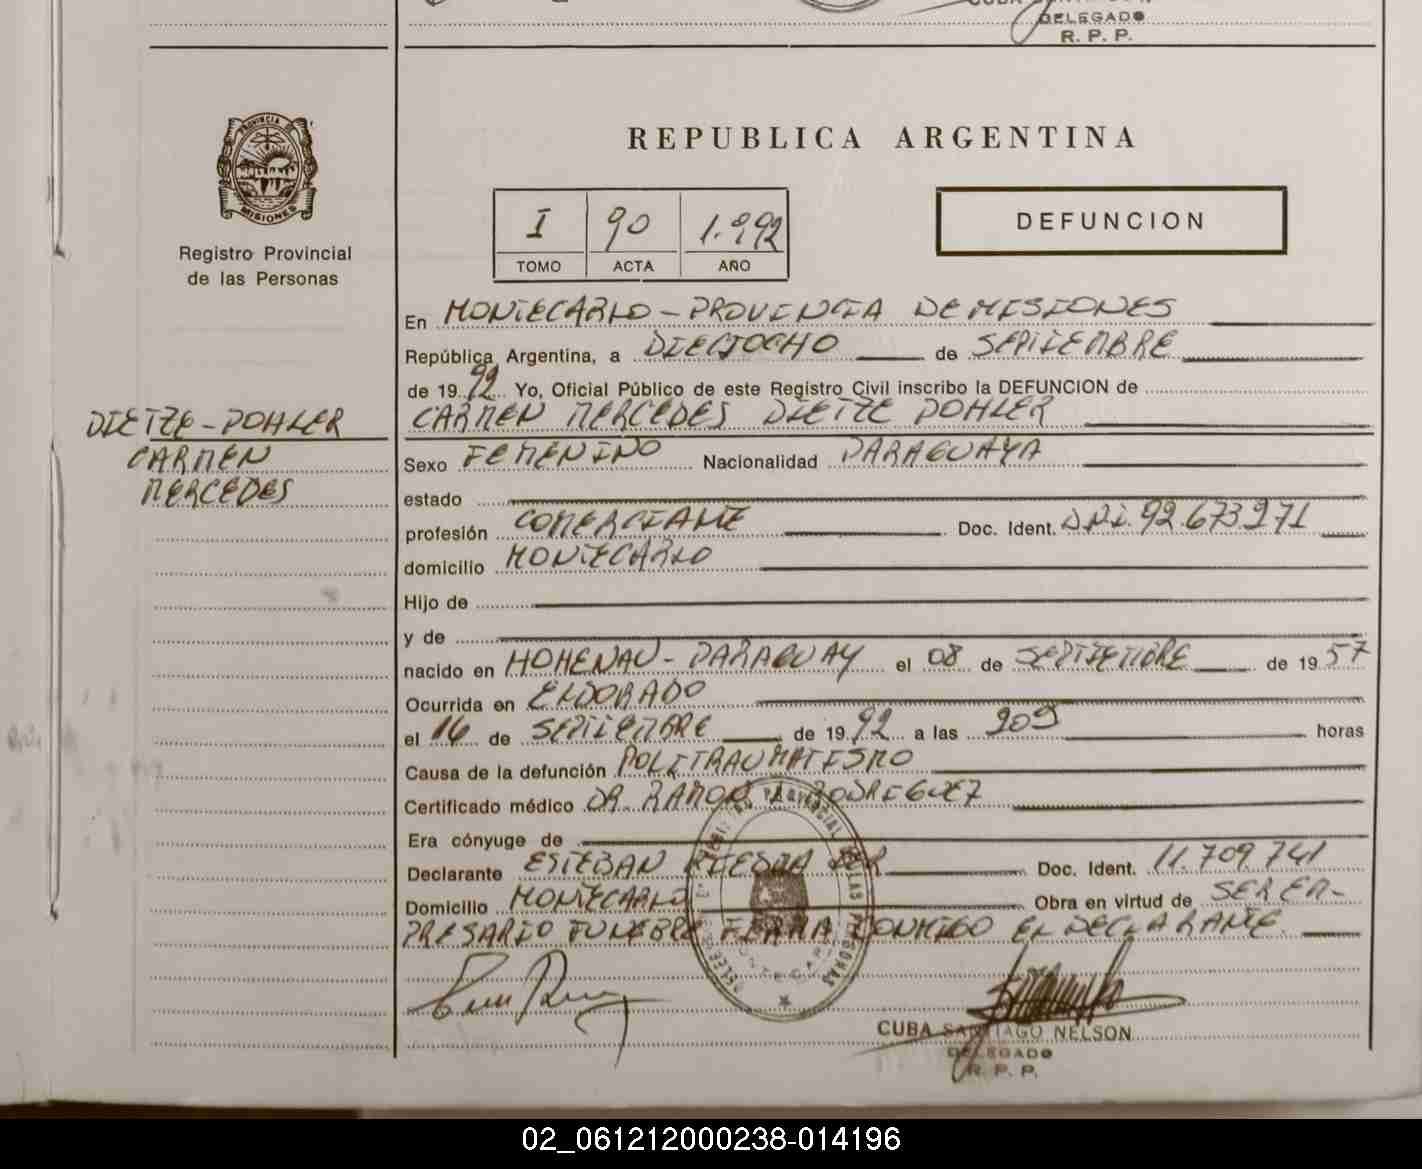 DELEGADO
R. P. P.
PROVINCIA DE
MISIONES
Registro Provincial
de las Personas
REPUBLICA ARGENTINA
I 90 1.992
TOMO ACTA AÑO
DEFUNCION
En MONTECARLO - PROVINCIA DE MISIONES
República Argentina, a DIECIOCHO de SEPTIEMBRE
de 1992 Yo, Oficial Público de este Registro Civil inscribo la DEFUNCION de
DIETZE - POHLER
CARMEN
MERCEDES
CARMEN MERCEDES DIETZE POHLER
Sexo FEMENINO Nacionalidad PARAGUAYA
estado
profesión COMERCIANTE Doc. Ident. D.N.I. 92.673.971
domicilio MONTECARLO
Hijo de
y de
nacido en HOHENAU - PARAGUAY el 08 de SEPTIEMBRE de 1957
Ocurrida en ELDORADO
el 16 de SEPTIEMBRE de 1992 a las 209 horas
Causa de la defunción POLITRAUMATISMO
Certificado médico DR RAMON RODRIGUEZ
Era cónyuge de
Declarante ESTEBAN Doc. Ident. 11.709.741
Domicilio MONTECARLO Obra en virtud de SER EM-
PRESARIO FUNEBRE FIRMA CONMIGO EL DECLARANTE.
CUBA SANTIAGO NELSON
DELEGADO
R. P. P.
02_061212000238-014196